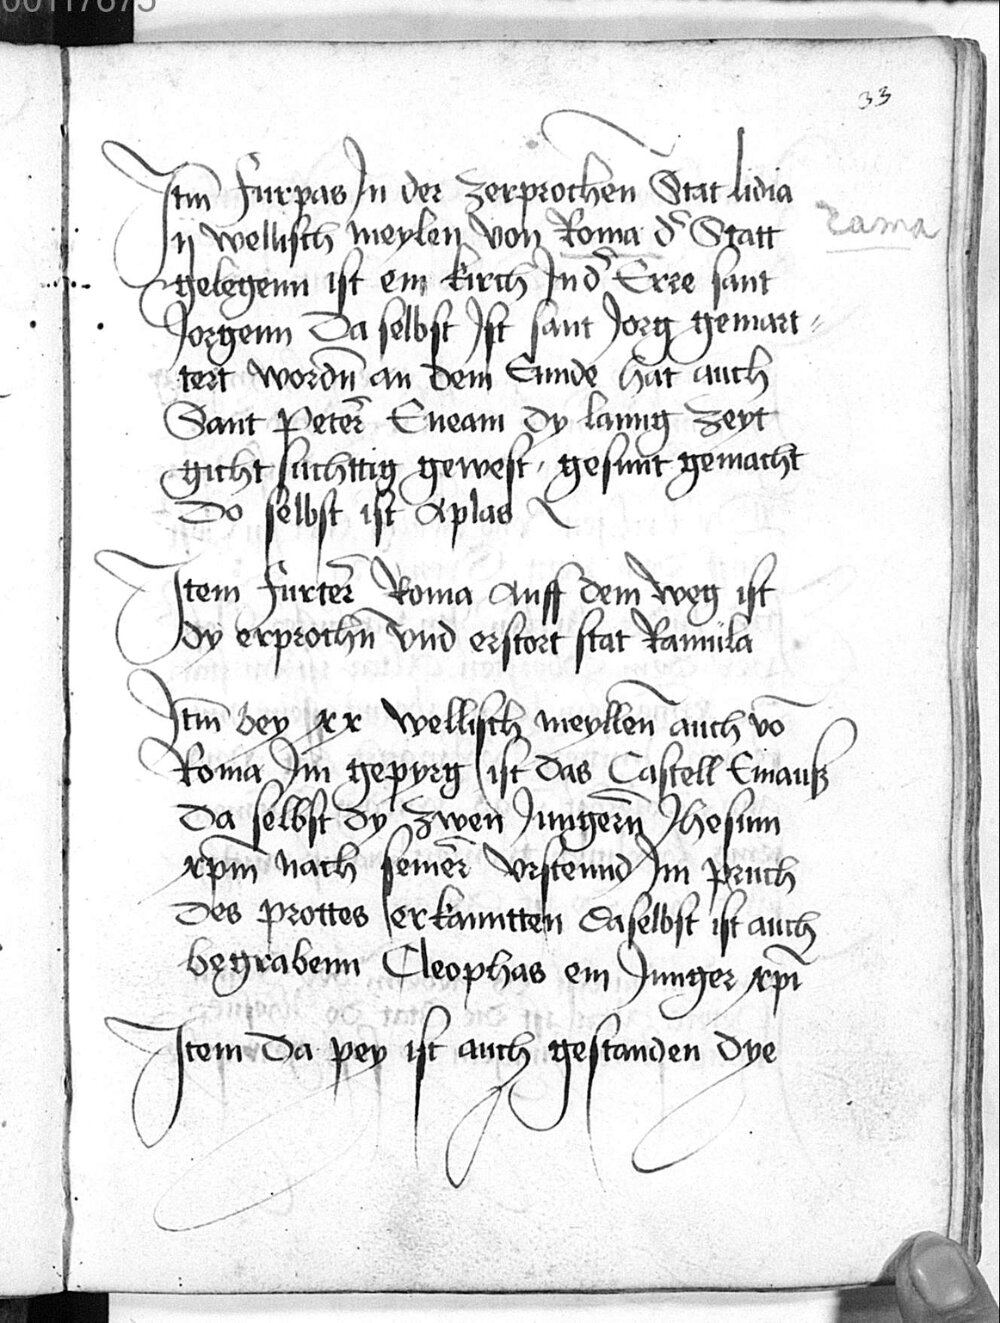 00117875
33
Itm furpas In der zerprochen Stat lidia
rama
ij wellisch meylen von Roma d͛ Statt
gelegenn ist ein kirch In d͛ Erze sant
Jorgenn Da selbst Ist sant Jorg gemart-
tert wordn̄ an dem Ennde hat auch
Sant Peter̄ Eneam dy lanng zeyt
gicht suchttig gewest, gesunt gemacht
Do selbst ist Aplas
Item furter̄ Roma Auff dem weg ist
dy erprochn̄ vnd erstort stat Ramula
Itm bey xx wellisch meyllen̄ auch vō
Roma Im gepyrg ist das Castell Emauß
Da selbst dy zwen Jungern̄ Jhesum
xp̄m nach seiner̄ vrstennd Im pruch
des prottes erkanntten Daselbst ist auch
begrabenn Cleophas ein Junger xp̄i
Item Da pey ist auch gestanden dye